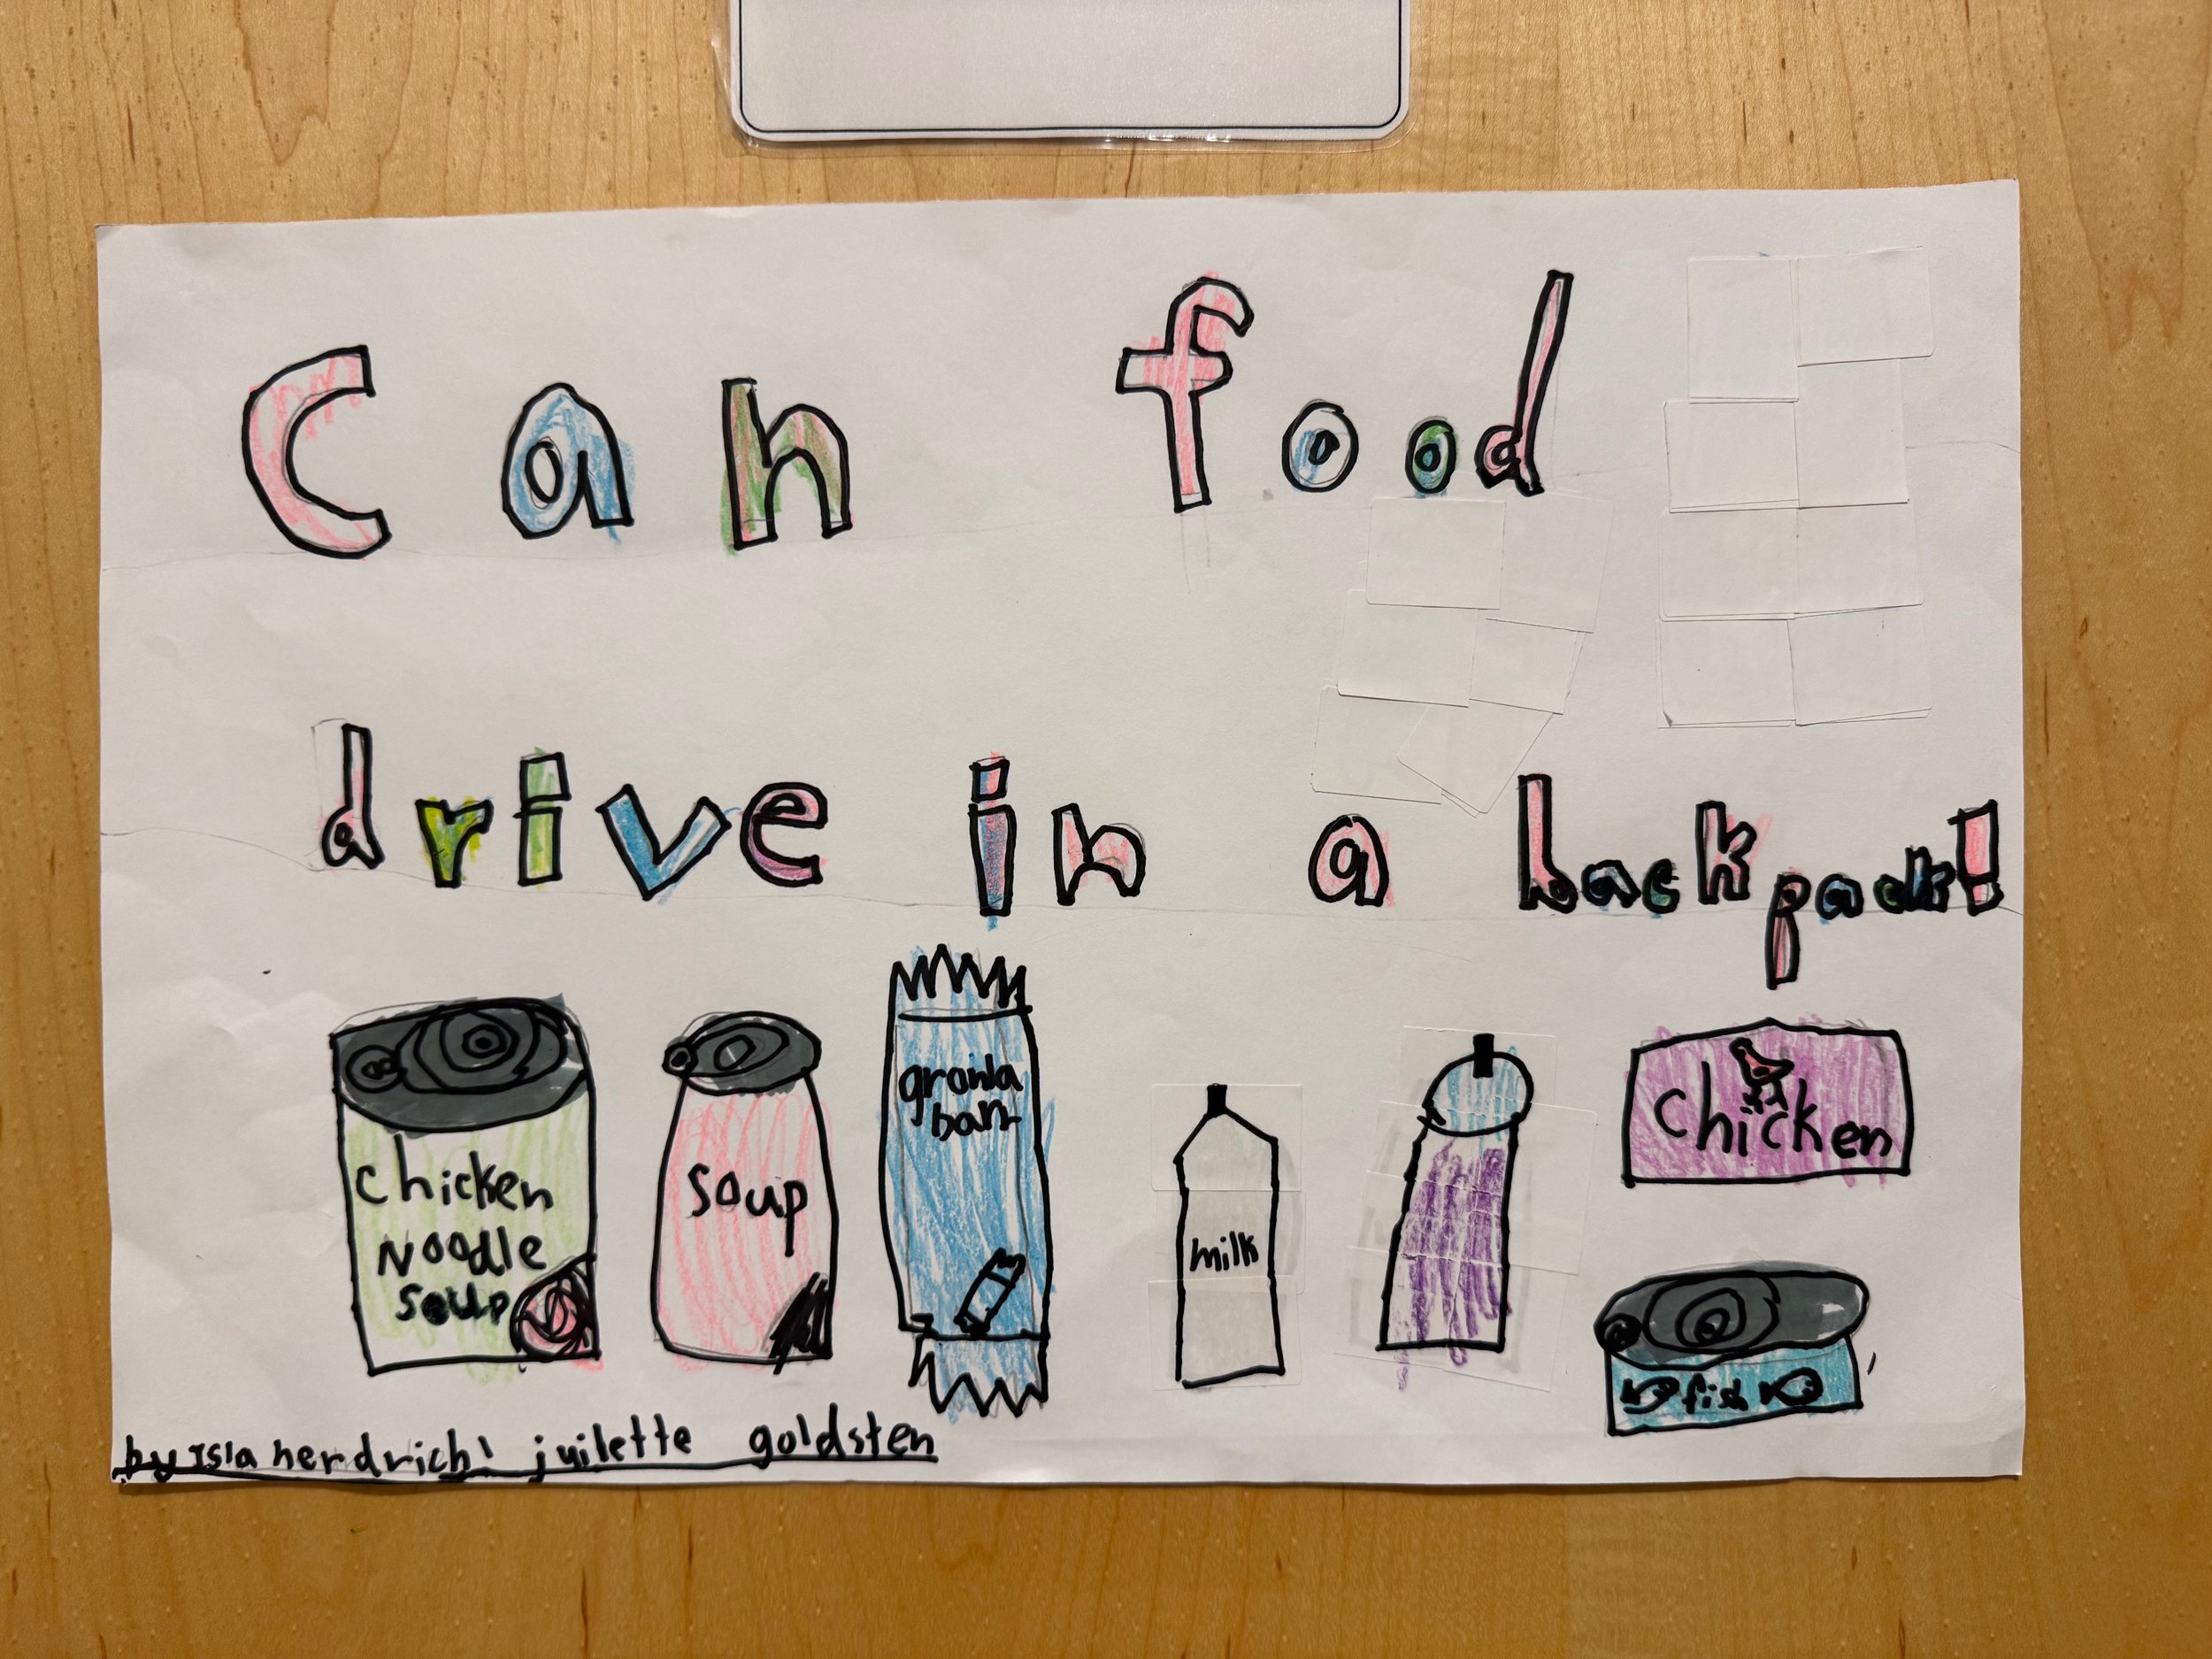 Can food
drive in a backpack!
chicken
Noodle
soup
soup
granla
barr
milk
chicken
fish
by Isla herdrich juilette goldsten